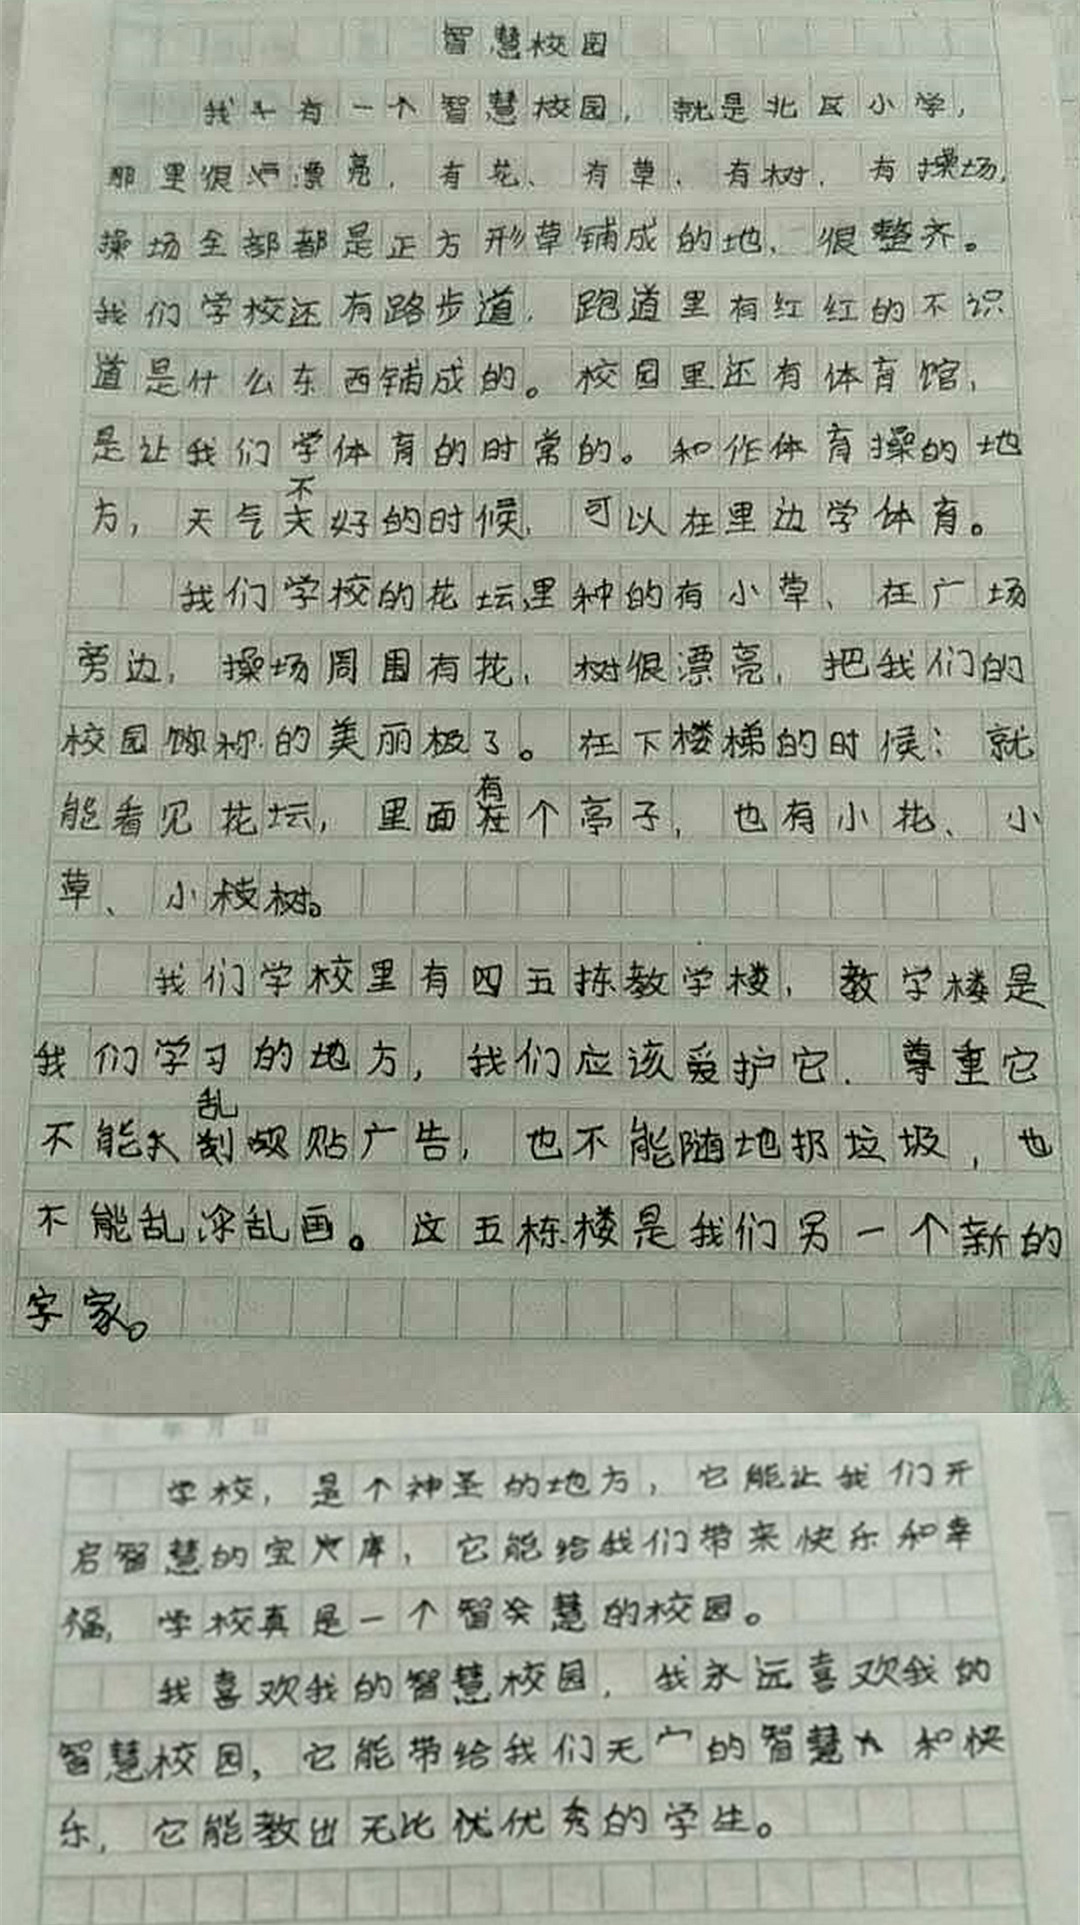 智慧校园
我有一个智慧校园，就是北区小学，
那里很漂亮，有花、有草、有树，有操场，
操场全部都是正方形草铺成的地，很整齐。
我们学校还有路步道，跑道里有红红的不识
道是什么东西铺成的。校园里还有体育馆，
是让我们学体育的时常的。和作体育操的地
方，天气不好的时候，可以在里边学体育。
我们学校的花坛里种的有小草、在广场
旁边，操场周围有花，树很漂亮，把我们的
校园的美丽极了。在下楼梯的时候；就
能看见花坛，里面有个亭子，也有小花、小
草、小枝树。
我们学校里有四五拣教学楼，教学楼是
我们学习的地方，我们应该爱护它．尊重它
不能乱贴广告，也不能随地扔垃圾，也
不能乱涂乱画。这五栋楼是我们另一个新的
字家。
年月日
学校，是个神圣的地方，它能让我们开
启智慧的宝库，它能给我们带来快乐和幸
福，学校真是一个智慧的校园。
我喜欢我的智慧校园，我永远喜欢我的
智慧校园，它能带给我们无的智慧和快
乐，它能教出无比优优秀的学生。